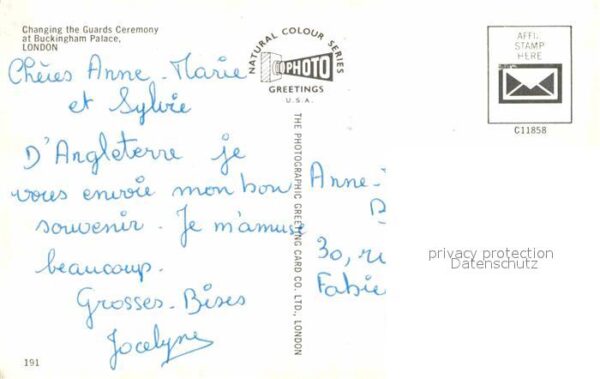 Changing the Guards Ceremony
at Buckingham Palace,
LONDON
Chères Anne-Marie
et Sylvie
D'Angleterre je
vous envoie mon bon
souvenir. Je m'amuse
beaucoup.
Grosses-Bises
Jocelyne
191
NATURAL COLOUR SERIES
PHOTO
GREETINGS
U.S.A.
THE PHOTOGRAPHIC GREETING CARD CO. LTD., LONDON
AFFIX
STAMP
HERE
C11858
Anne-
30,
privacy protection
Datenschutz